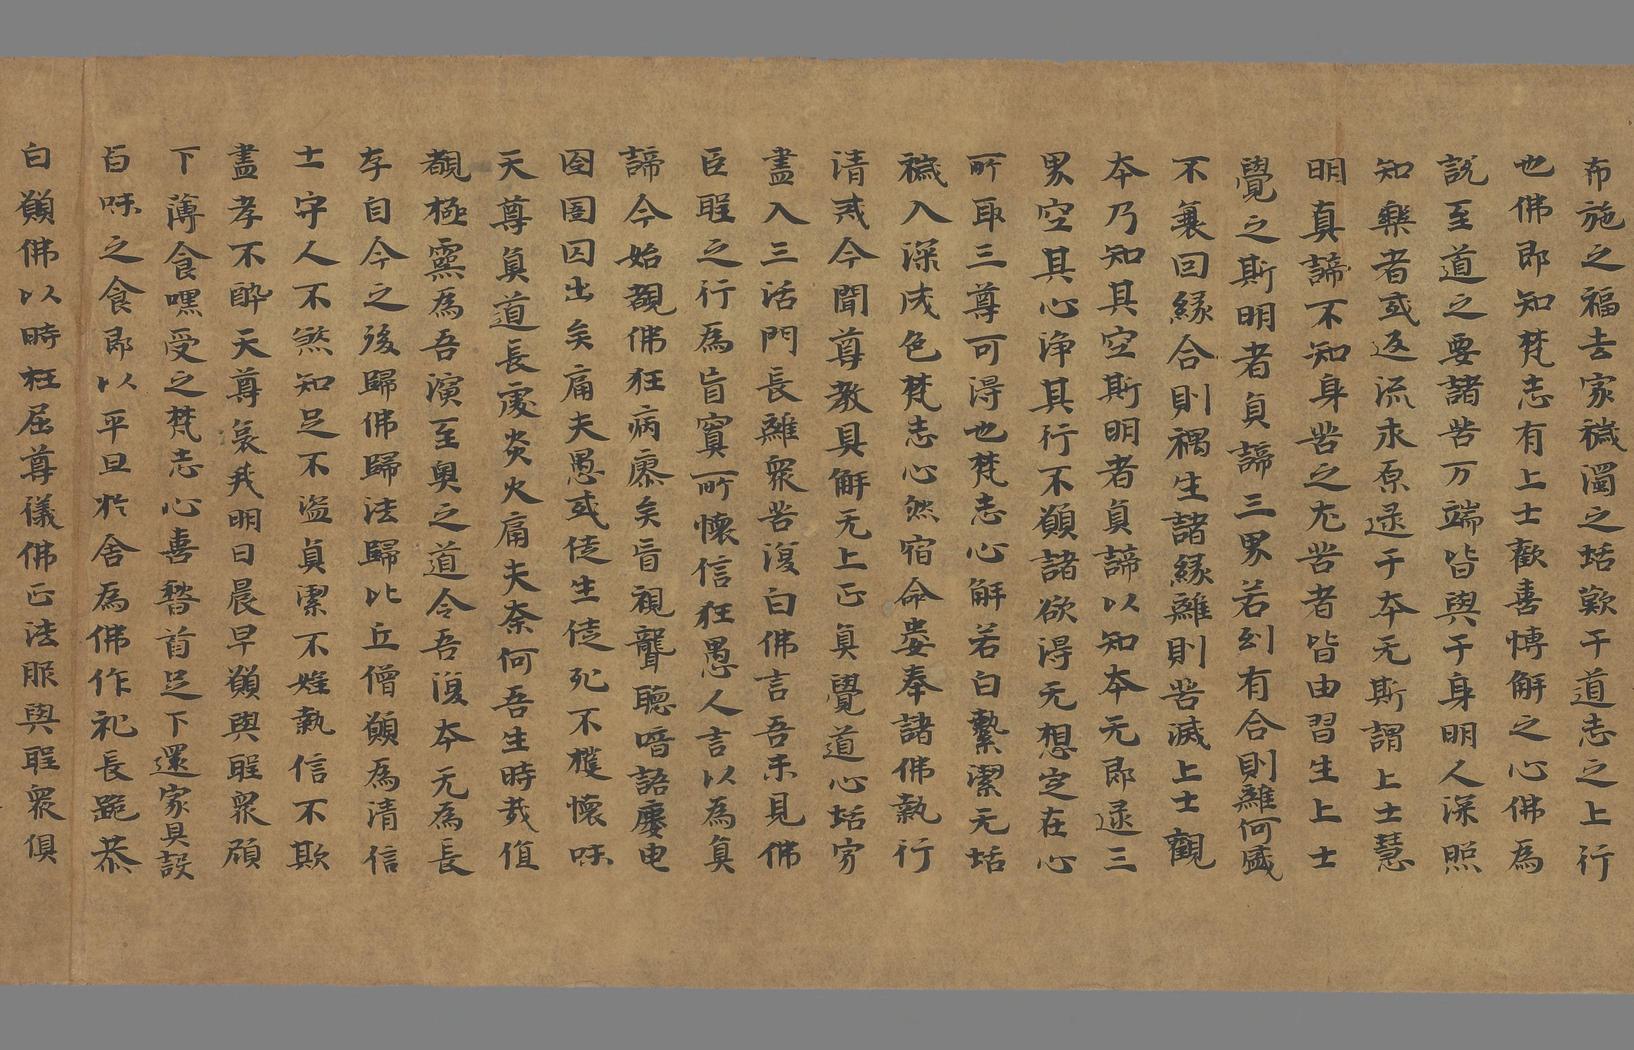 布施之福去家穢濁之垢歎干道志之上行
也佛即知梵志有上士歡喜愽解之心佛為
說至道之要諸苦万端皆興于身明人深照
知樂者或返流求原逯于夲无斯謂上士慧
明真諦不知身苦之尤苦者皆由習生上士
覺之斯明者貞諦三界若幻有合則離何盛
不衰回緣合則禍生諸緣離則苦滅上士觀
夲乃知其空斯明者貞諦以知夲元即逯三
界空其心浄其行不願諸欲得无想定在心
所取三尊可得也梵志心解若白繫潔无垢
穢入深成色梵志心然宿命婁奉諸佛執行
清戒今聞尊教具解无上正真覺道心垢穷
盡入三活門長離衆苦復白佛言吾未見佛
臣聖之行為盲冥所懷信狂愚人言以為真
諦今始覩佛狂病廖矣盲視聾聽喑語躄申
囹圄囚出矣痛夫愚或徒生徒死不獲懷味
天尊真道長處炎火痛夫奈何吾生時哉值
覩極靈為吾演至奥之道令吾復夲无為長
存自今之後歸佛歸法歸比丘僧願為清信
士守人不煞知足不盗貞潔不婬執信不欺
盡孝不酔天尊哀我明日晨早願與聖衆碩
下薄食嘿受之梵志心喜稽首足下還家具設
百味之食即以平旦於舍為佛作礼長跪恭
白願佛以時枉屈尊儀佛正法服與聖衆俱